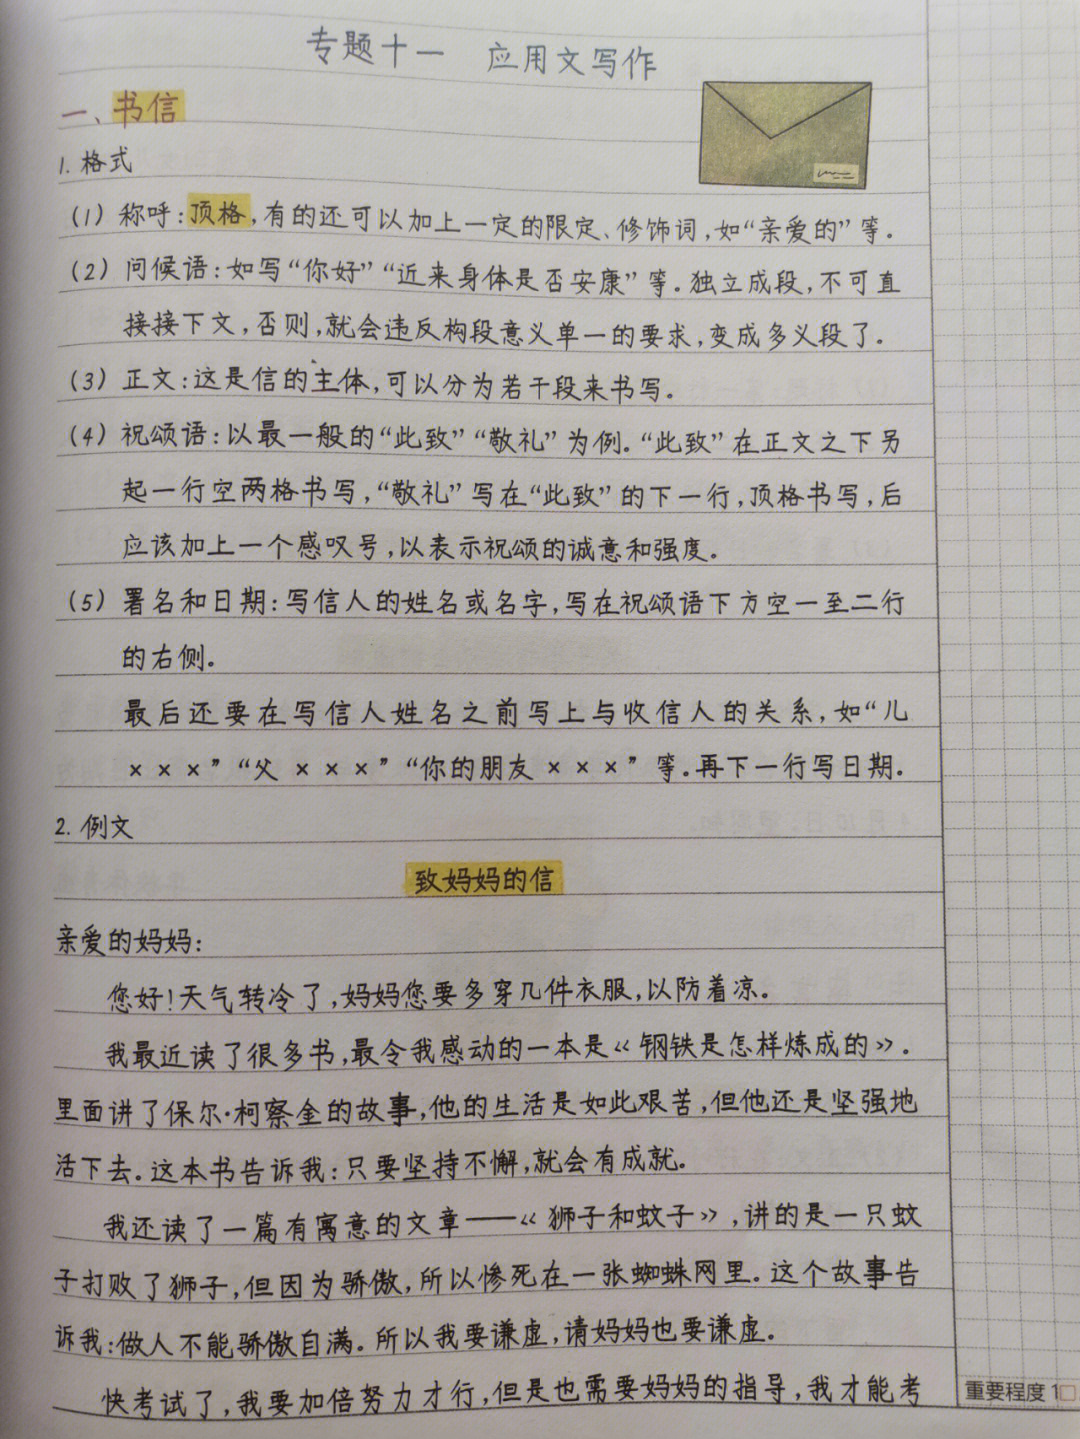 专题十一 应用文写作
一、书信
1. 格式
(1) 称呼:顶格,有的还可以加上一定的限定、修饰词,如“亲爱的”等.
(2) 问候语:如写“你好”“近来身体是否安康”等.独立成段,不可直
接接下文,否则,就会违反构段意义单一的要求,变成多义段了.
(3) 正文:这是信的主体,可以分为若干段来书写.
(4) 祝颂语:以最一般的“此致”“敬礼”为例.“此致”在正文之下另
起一行空两格书写,“敬礼”写在“此致”的下一行,顶格书写,后
应该加上一个感叹号,以表示祝颂的诚意和强度。
(5) 署名和日期:写信人的姓名或名字,写在祝颂语下方空一至二行
的右侧.
最后还要在写信人姓名之前写上与收信人的关系,如“儿
×××”“父×××”“你的朋友×××”等.再下一行写日期.
2. 例文
致妈妈的信
亲爱的妈妈:
您好!天气转冷了,妈妈您要多穿几件衣服,以防着凉。
我最近读了很多书,最令我感动的一本是《钢铁是怎样炼成的》.
里面讲了保尔·柯察金的故事,他的生活是如此艰苦,但他还是坚强地
活下去。这本书告诉我:只要坚持不懈,就会有成就.
我还读了一篇有寓意的文章——《狮子和蚊子》,讲的是一只蚊
子打败了狮子,但因为骄傲,所以惨死在一张蜘蛛网里。这个故事告
诉我:做人不能骄傲自满。所以我要谦虚,请妈妈也要谦虚.
快考试了,我要加倍努力才行,但是也需要妈妈的指导,我才能考
重要程度 1□